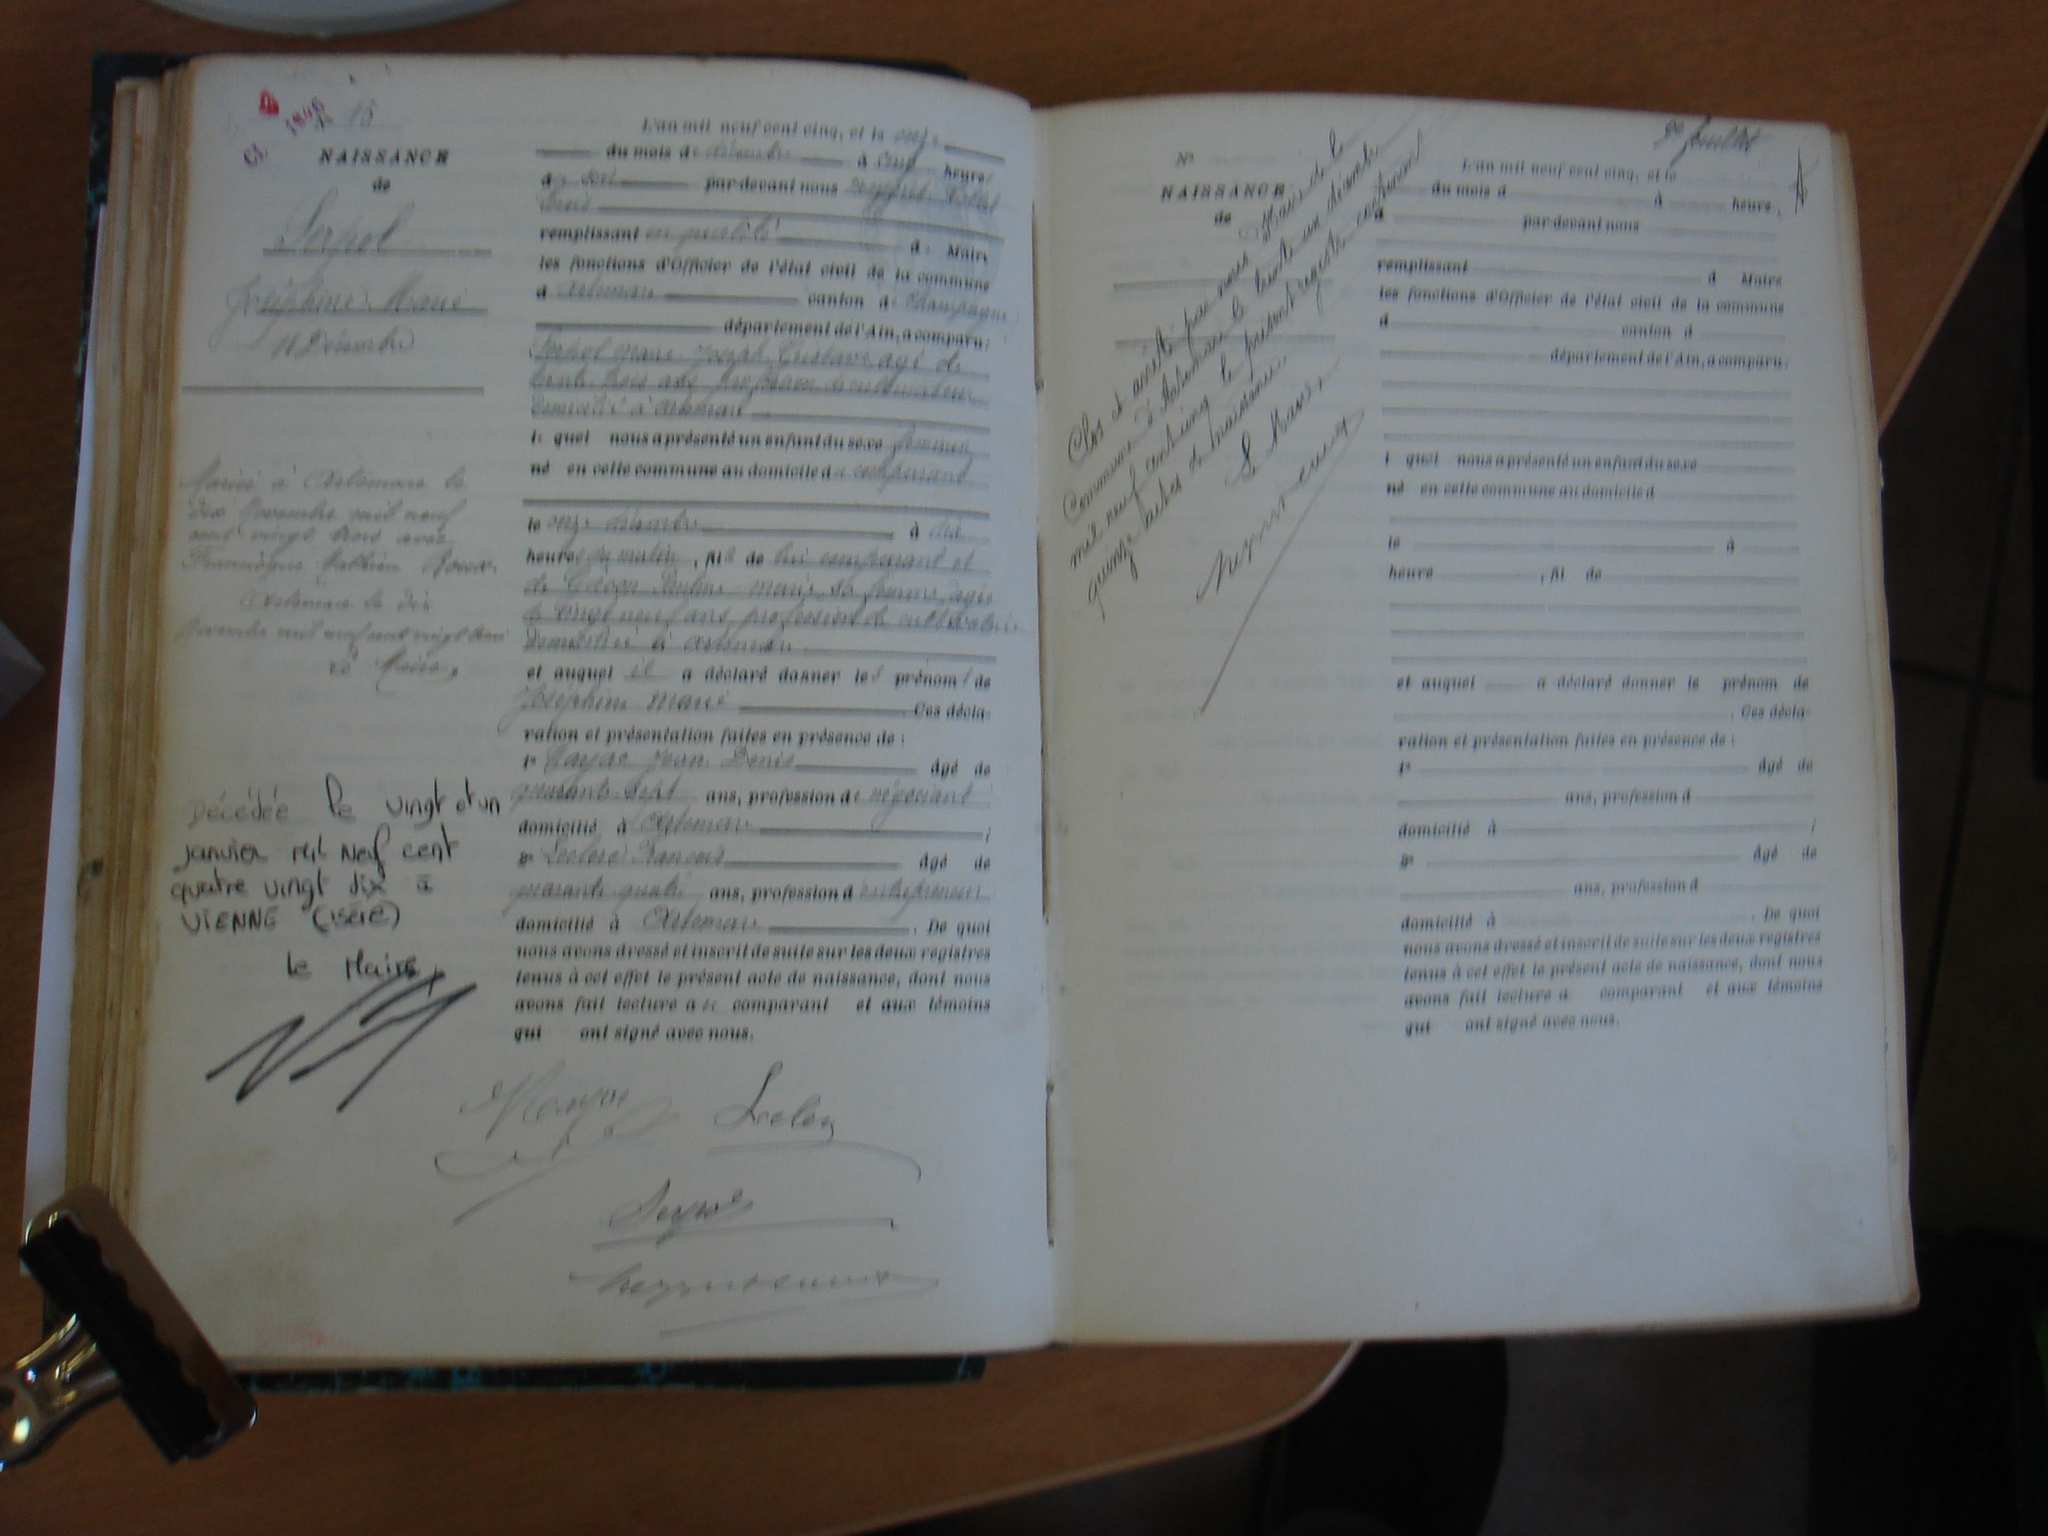 N° 15
NAISSANCE
de
Serpol
Joséphine Marie
11 Décembre
Mariée à Artemare le
dix Novembre mil neuf
cent vingt trois avec
Artemare le dix
Novembre mil neuf cent vingt trois
Le Maire,
Décédée le vingt et un
janvier mil neuf cent
quatre vingt dix à
VIENNE (ISÈRE)
le Maire,
L'an mil neuf cent cinq, et le onze
du mois de décembre à cinq heures
du soir par-devant nous
remplissant en qualité de Maire
les fonctions d'Officier de l'état civil de la commune
d'Artemare canton de Champagne
département de l'Ain, a comparu:
Serpol Marie Joseph Gustave agé de
trente trois ans profession de cultivateur
domicilié à Artemare
le quel nous a présenté un enfant du sexe féminin
né en cette commune au domicile du comparant
le onze décembre à dix
heures du matin, fille de lui comparant et
de Pauline Marie sa femme, agée
de vingt neuf ans profession de cultivatrice
domiciliée à Artemare
et auquel il a déclaré donner les prénoms de
Joséphine Marie. Ces décla-
ration et présentation faites en présence de :
1° Jean Denis âgé de
quarante sept ans, profession de négociant
domicilié à Artemare ;
2° Leclerc François âgé de
quarante quatre ans, profession d'entrepreneur
domicilié à Artemare. De quoi
nous avons dressé et inscrit de suite sur les deux registres
tenus à cet effet le présent acte de naissance, dont nous
avons fait lecture au comparant et aux témoins
qui ont signé avec nous.
Leclerc
Serpol
9e feuillet
N°
NAISSANCE
de
Clos et arrêté par nous Maire de la
Commune d'Artemare le trente un décembre
mil neuf cent cinq le présent registre contenant
quinze actes de naissance.
Le Maire,
L'an mil neuf cent cinq, et le
du mois d à heure,
d par-devant nous
remplissant d Maire
les fonctions d'Officier de l'état civil de la commune
d canton d
département de l'Ain, a comparu:
l quel nous a présenté un enfant du sexe
né en cette commune au domicile d
le à
heure , fil de
et auquel a déclaré donner le prénom de
. Ces décla-
ration et présentation faites en présence de :
1° âgé de
ans, profession d
domicilié à ;
2° âgé de
ans, profession d
domicilié à . De quoi
nous avons dressé et inscrit de suite sur les deux registres
tenus à cet effet le présent acte de naissance, dont nous
avons fait lecture a comparant et aux témoins
qui ont signé avec nous.